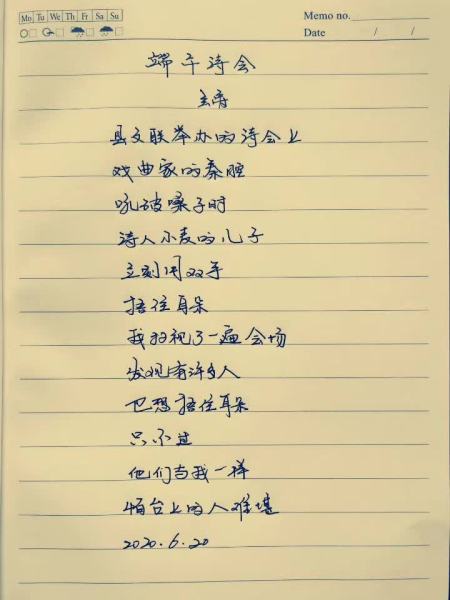 Mo Tu We Th Fr Sa Su
Memo no.
Date / /
端午诗会
县文联举办的诗会上
戏曲家的秦腔
吼破嗓子时
诗人小麦的儿子
立刻用双手
捂住耳朵
我扫视了一遍会场
发现有许多人
也想捂住耳朵
只不过
他们与我一样
怕台上的人难堪
2020.6.20